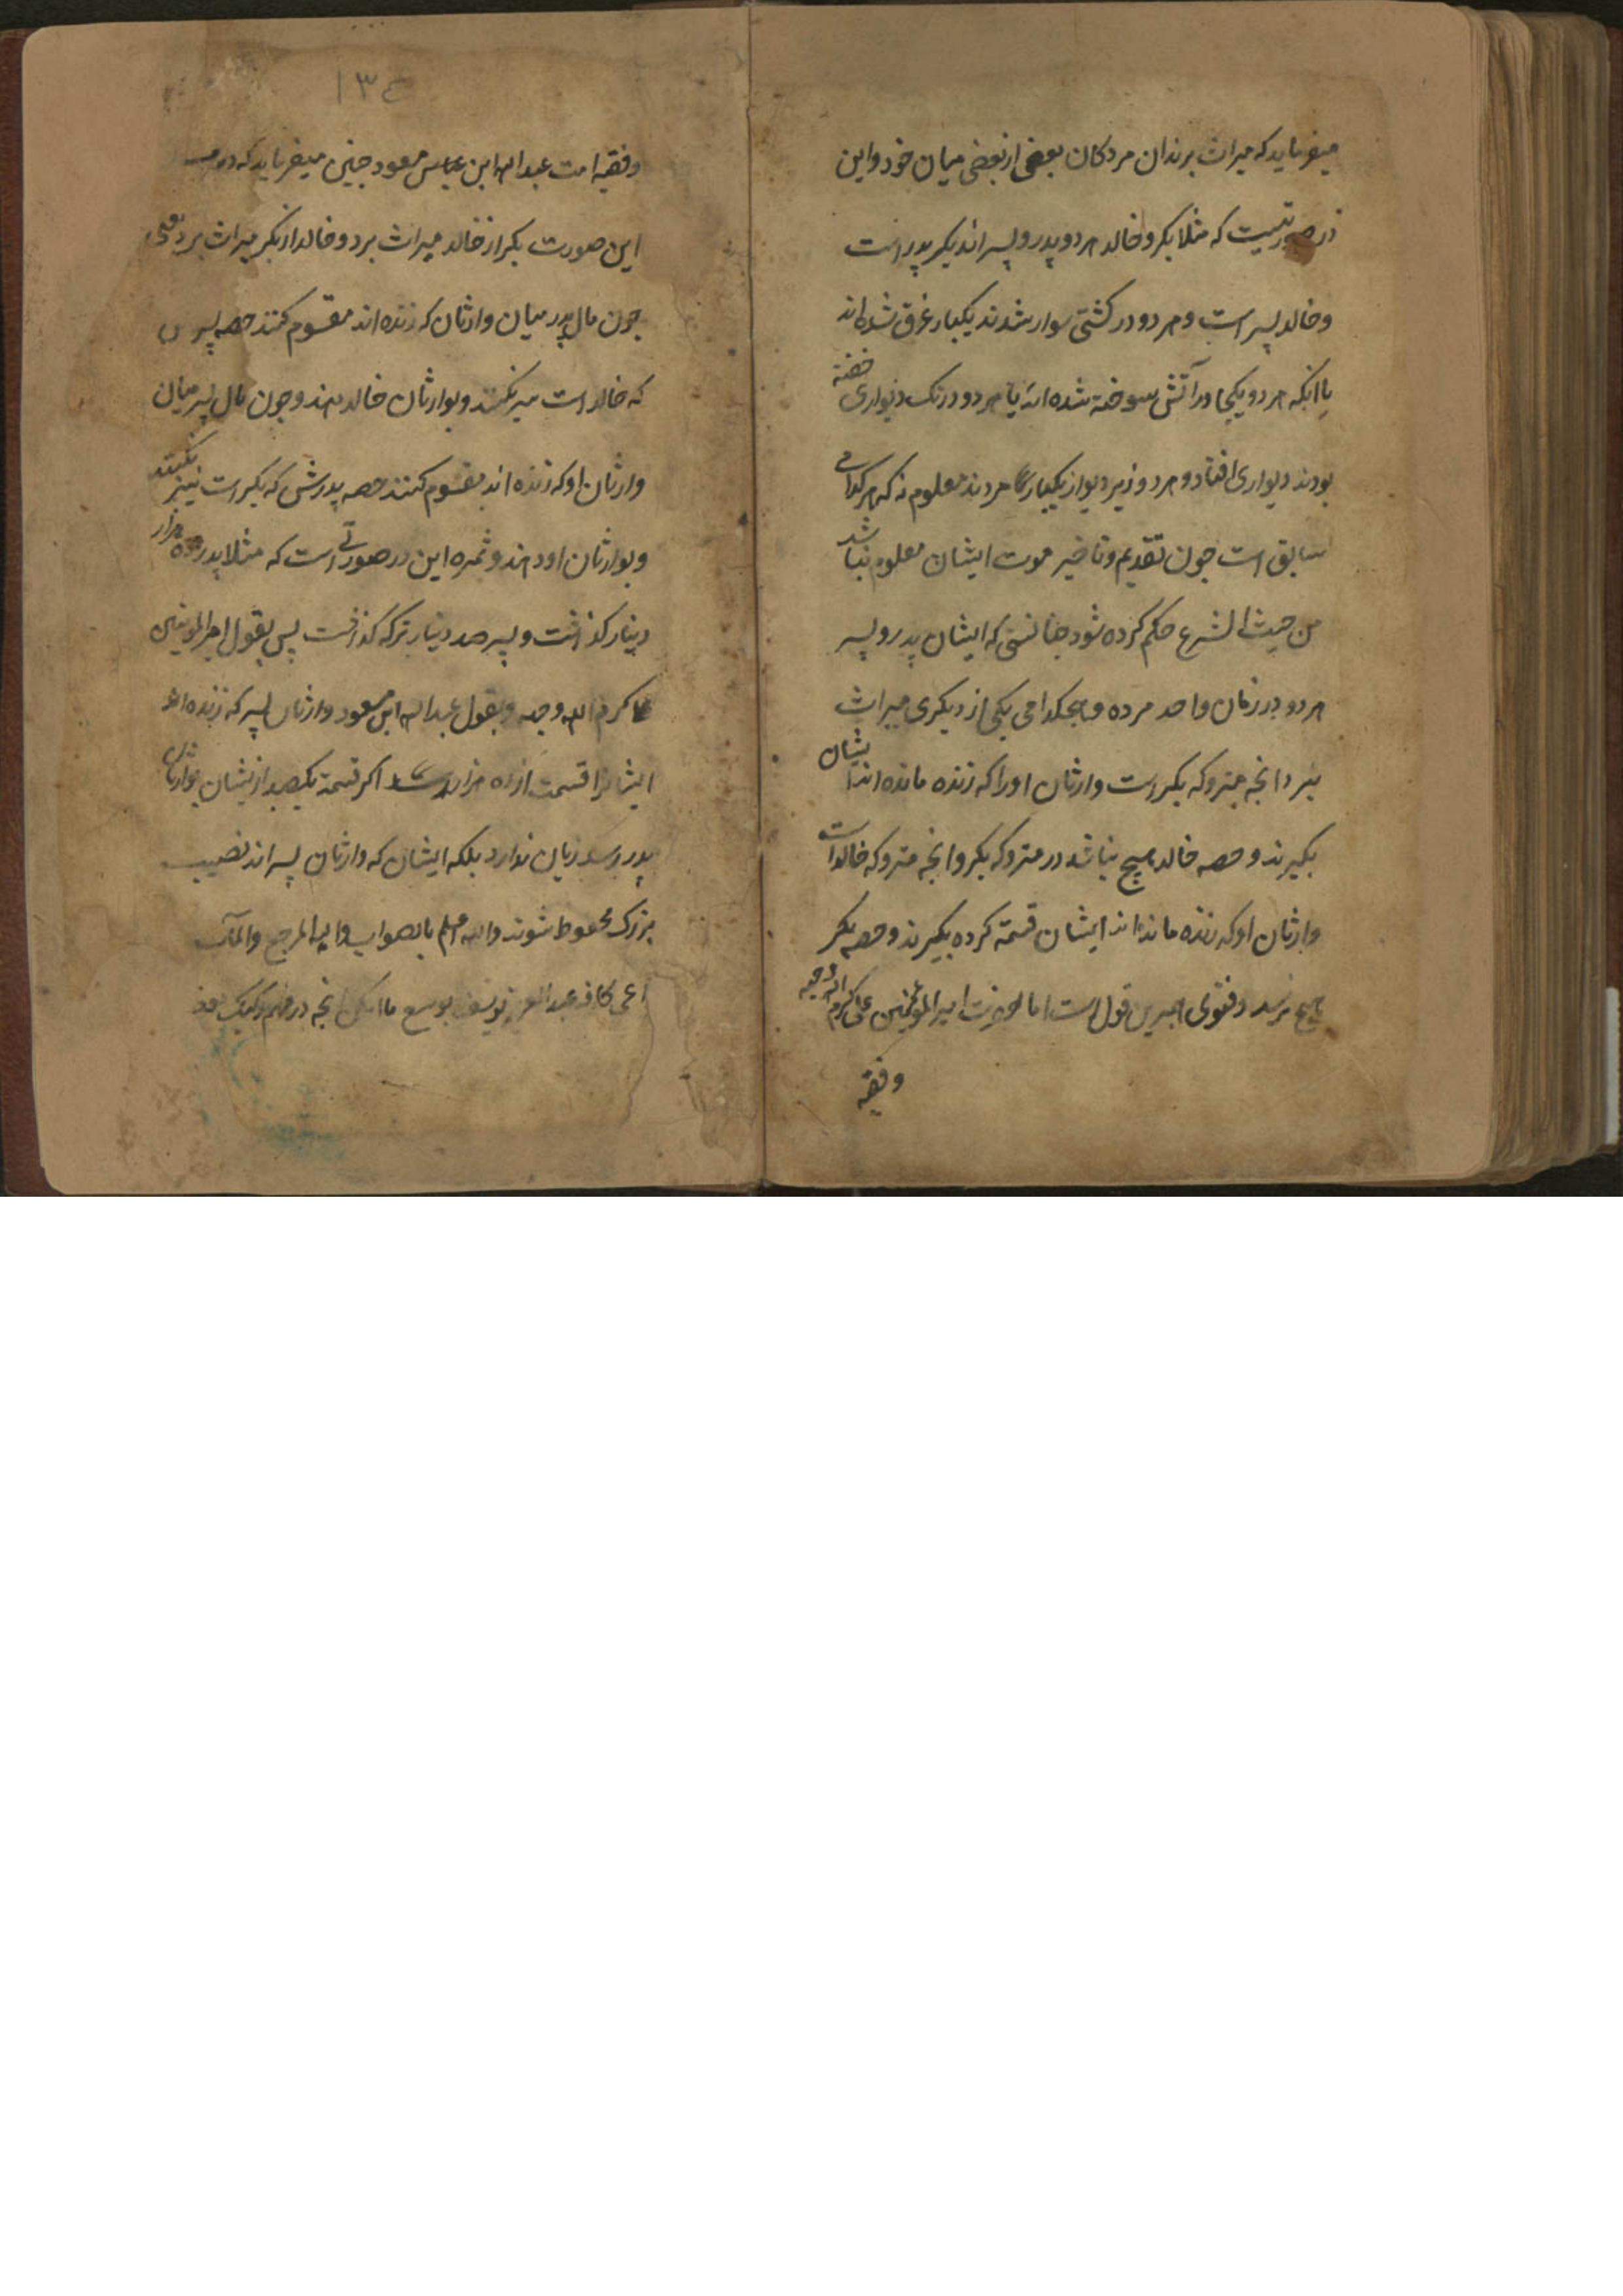 میفرماید که میراث برند ان مردکان بعضی از بعضی میان خود و این
در صورتیست که مثلا بکر و خالد هر دو پدر و پسر اند بکر پدر است
و خالد پسر است و هر دو در کشتی سوار شدند یکبار غرق شده اند
یا انکه هر دو یکجا در آتش سوخته شده اند یا هر دو در تک دیواری خفته
بودند دیواری افتاد و هر دو زیر دیوار یکبارکی مردند معلوم نه که هر کدامی
سابق است چون تقدیم و تاخیر موت ایشان معلوم نباشد
من حیث الشرع حکم کرده شود چنانستی که ایشان پدر و پسر
هر دو در زمان واحد مرده و هیچکدامی یکی از دیکری میراث
نبرد انچه متروکه بکر است وارثان او را که زنده مانده اند ایشان
بکیرند و حصه خالد هیچ نباشد در متروکه بکر و انچه متروکه خالد است
وارثان او که زنده مانده اند ایشان قسمة کرده بکیرند و حصه بکر
هیچ نرسد و فتوی هم برین قول است اما حضرت امیر المؤمنین علی کرم الله وجهه
وفقیه
١٣٤
وفقیه امت عبد الله ابن عباس مسعود چنین میفرماید که در
این صورت بکر از خالد میراث برد و خالد از بکر میراث برد یعنی
چون مال پدر میان وارثان که زنده اند مقسوم کنند حصه پسر
که خالد است نیز بکشند و بوارثان خالد دهند و چون مال پسر میان
وارثان او که زنده اند مقسوم کنند حصه پدرش که بکر است نیز بکشند
و بوارثان او دهند و ثمره این در صورتی است که مثلا پدر ده هزار
دینار کذاشت و پسر صد دینار ترکه کذاشت پس بقول امیر المؤمنین
علی کرم الله وجهه و بقول عبد الله ابن مسعود وارثان پسر که زنده اند
ایشانرا قسمت از ده هزار رسد اکر قسمة یکصد از یشان بوارثان
پدر برسد زیان ندارد بلکه ایشان که وارثان پسر اند نصیب
بزرک محظوظ شوند والله اعلم بالصواب والیه المرجع والمآب